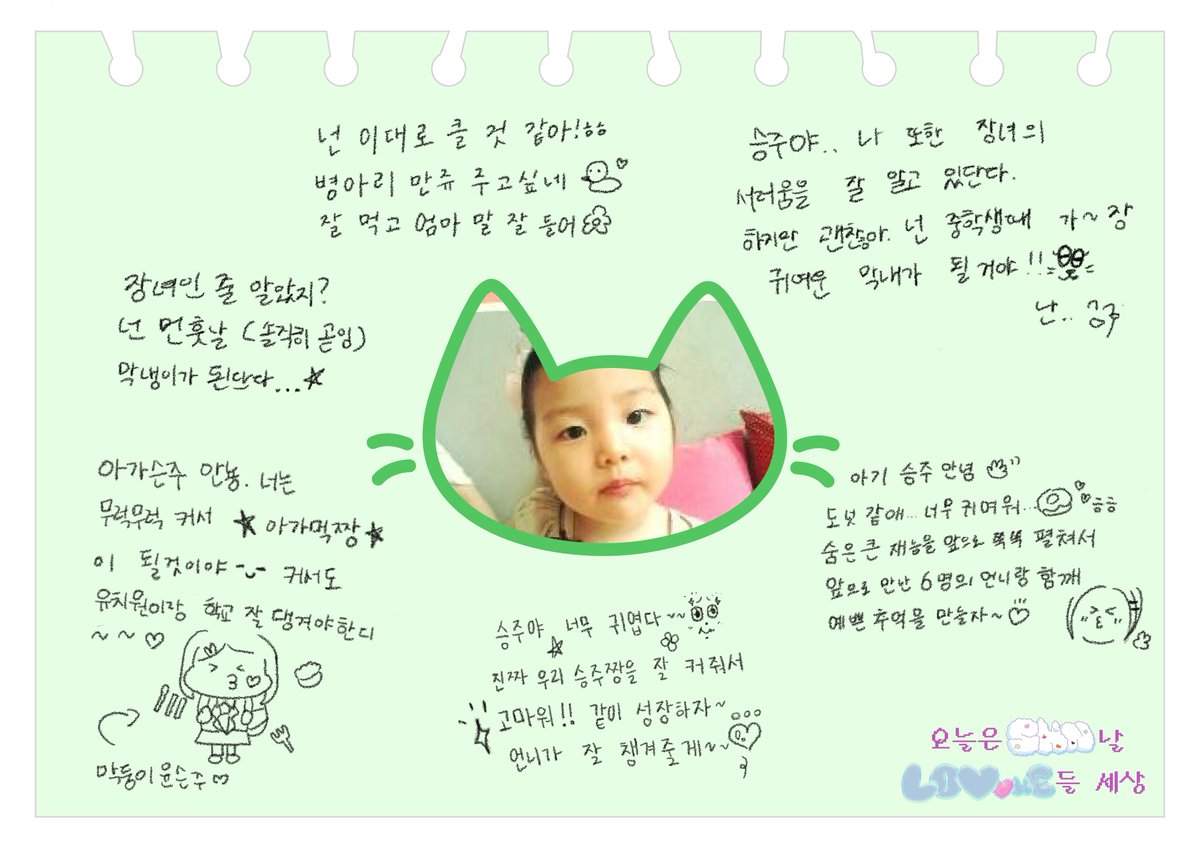 넌 이대로 클 것 같아!ㅎㅎ
병아리 만쥬 주고싶네
잘 먹고 엄마 말 잘 들어
승주야.. 나 또한 장녀의
서러움을 잘 알고 있단다.
하지만 괜찮아. 넌 중학생때 가~장
귀여운 막내가 될거야!!
난..
장녀인 줄 알았지?
넌 먼훗날 (솔직히 곧임)
막냉이가 된단다...
아가슨주 안뇽. 너는
무럭무럭 커서 ★아가먹짱★
이 될것이야 커서도
유치원이랑 학교 잘 댕겨야한디
~~♡
막둥이윤슨주♡
승주야 너무 귀엽다~~
진짜 우리 승주짱을 잘 커줘서
고마워!! 같이 성장하자~
언니가 잘 챙겨줄게~~
아기 승주 안녕
도넛 같애... 너무 귀여워... ㅎㅎ
숨은 큰 재능을 앞으로 쭉쭉 펼쳐서
앞으로 만난 6명의 언니랑 함께
예쁜 추억을 만들자~♡
오늘은 날
LOVE ME들 세상